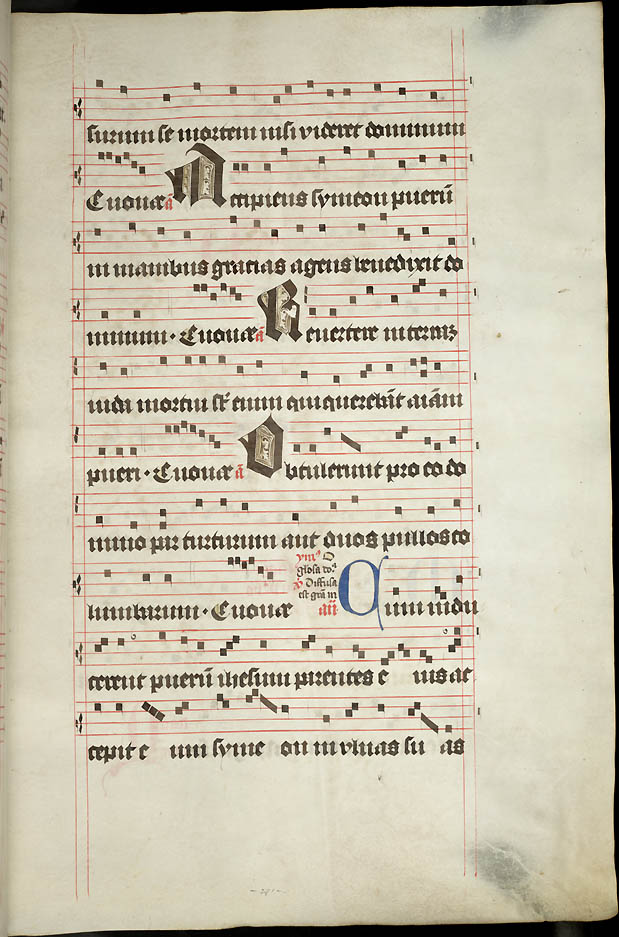 surum se mortem nisi videret dominum
Euouae a Accipiens symeon pueru᷑
in manibus gracias agens benedixit do
minum · Euouae a Revertere in terrā
iuda mortui su᷑t enim qui querebāt aīam
pueri · Euouae a Obtulerunt pro eo do
mino par turturum aut duos pullos co
lumbarum · Euouae ymꝰ O
glosa
Diffusa
est grā in
añ Cum indu
cerent puerū ihesum parentes e ius ac
cepit e um syme on in vlnas su as